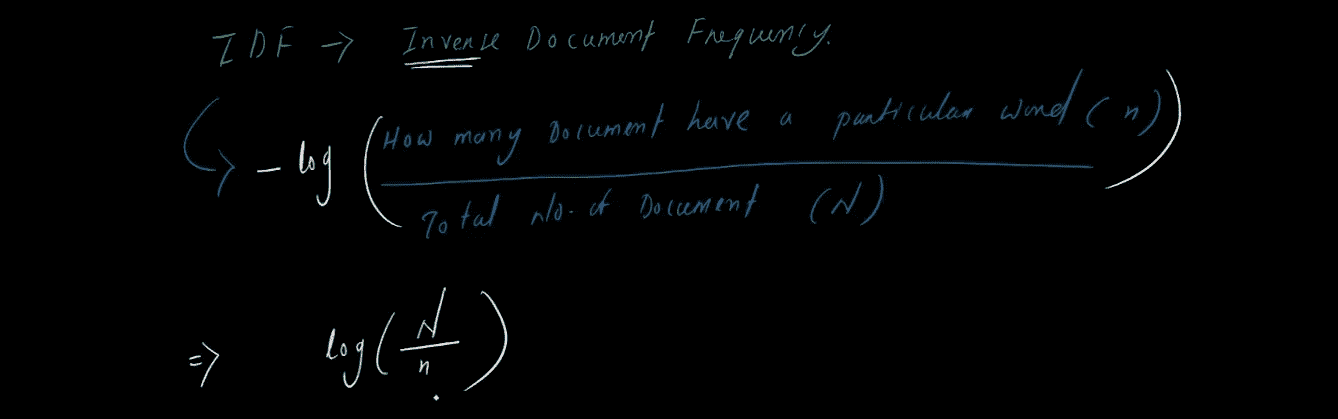 IDF → Inverse Document Frequency.
- log ( How many Document have a particular word ( n ) )
Total No. of Document ( N )
⇒ log ( N / n )